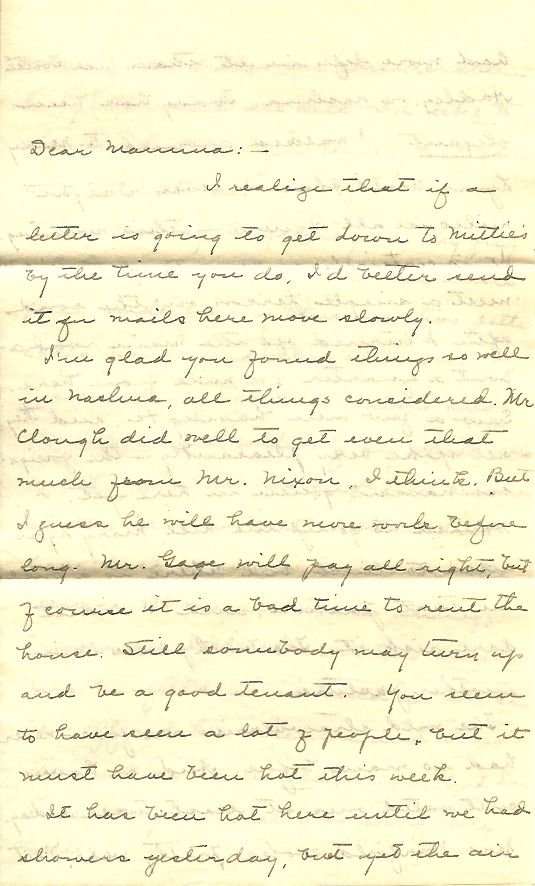 Dear Mamma: -
I realize that if a
letter is going to get down to Mittie's
by the time you do, I'd better send
it for mails here move slowly.
I'm glad you found things so well
in Nashua, all things considered. Mr
Clough did well to get even that
much from Mr. Nixon, I think. But
I guess he will have more work before
long. Mr. Gage will pay all right, but
of course it is a bad time to rent the
house. Still somebody may turn up
and be a good tenant. You seem
to have seen a lot of people, but it
must have been hot this week.
It has been hot here until we had
showers yesterday, but yet the air